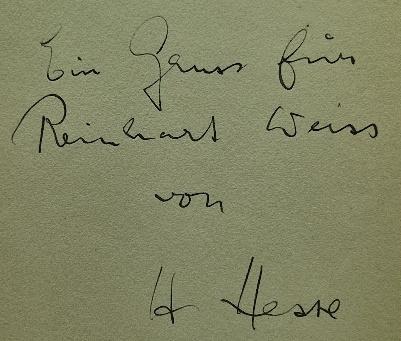 Ein Gruss für
Reinhart Weiss
von
H Hesse